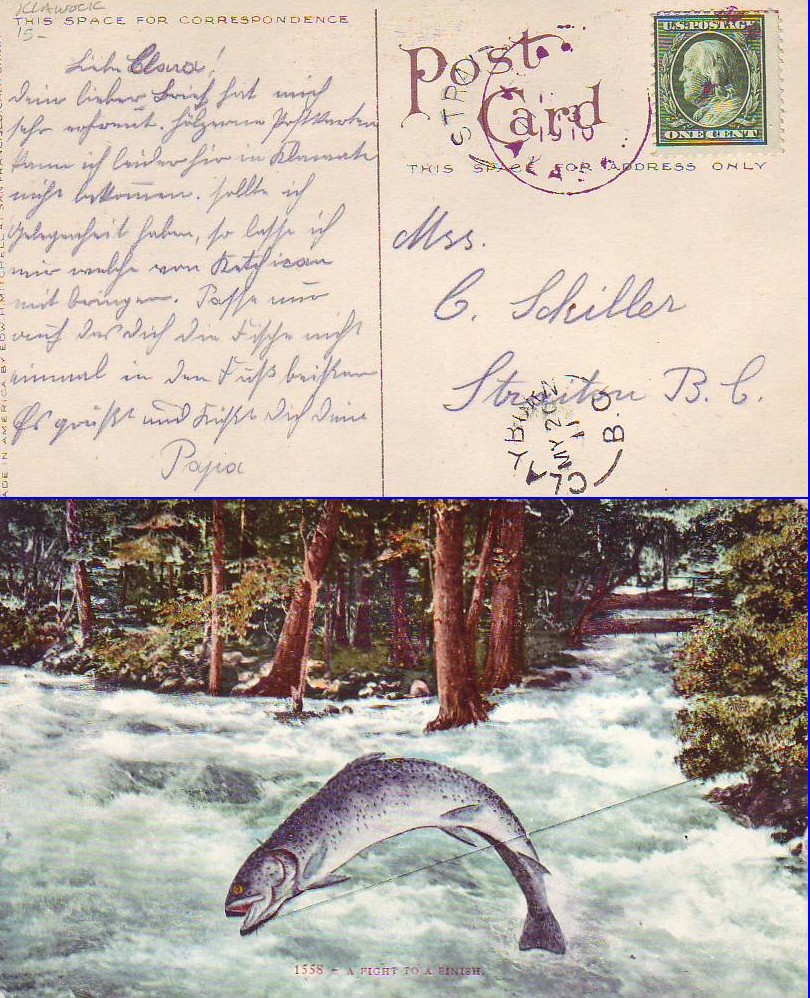 KLAWOCK
15-
THIS SPACE FOR CORRESPONDENCE
Liebe Clara!
Dein lieber Brief hat mich
sehr erfreut. Hölzerne Postkarten
kann ich leider hir in Klawak
nicht bekommen. sollte ich
Gelegenheit haben, so lasse ich
mir welche von Ketchican
mit bringen. Passe nur
auf das dich die Fische nicht
einmal in den Fuß beißen
Es grüßt und Küßt dich dein
Papa
MADE IN AMERICA BY EDW. H. MITCHELL SAN FRANCISCO
Post
Card
U.S. POSTAGE
ONE CENT
THIS SPACE FOR ADDRESS ONLY
Mss.
C. Schiller
Straiton B. C.
CLAYBURN
MY 20
11
B.C.
1558 - A FIGHT TO A FINISH.